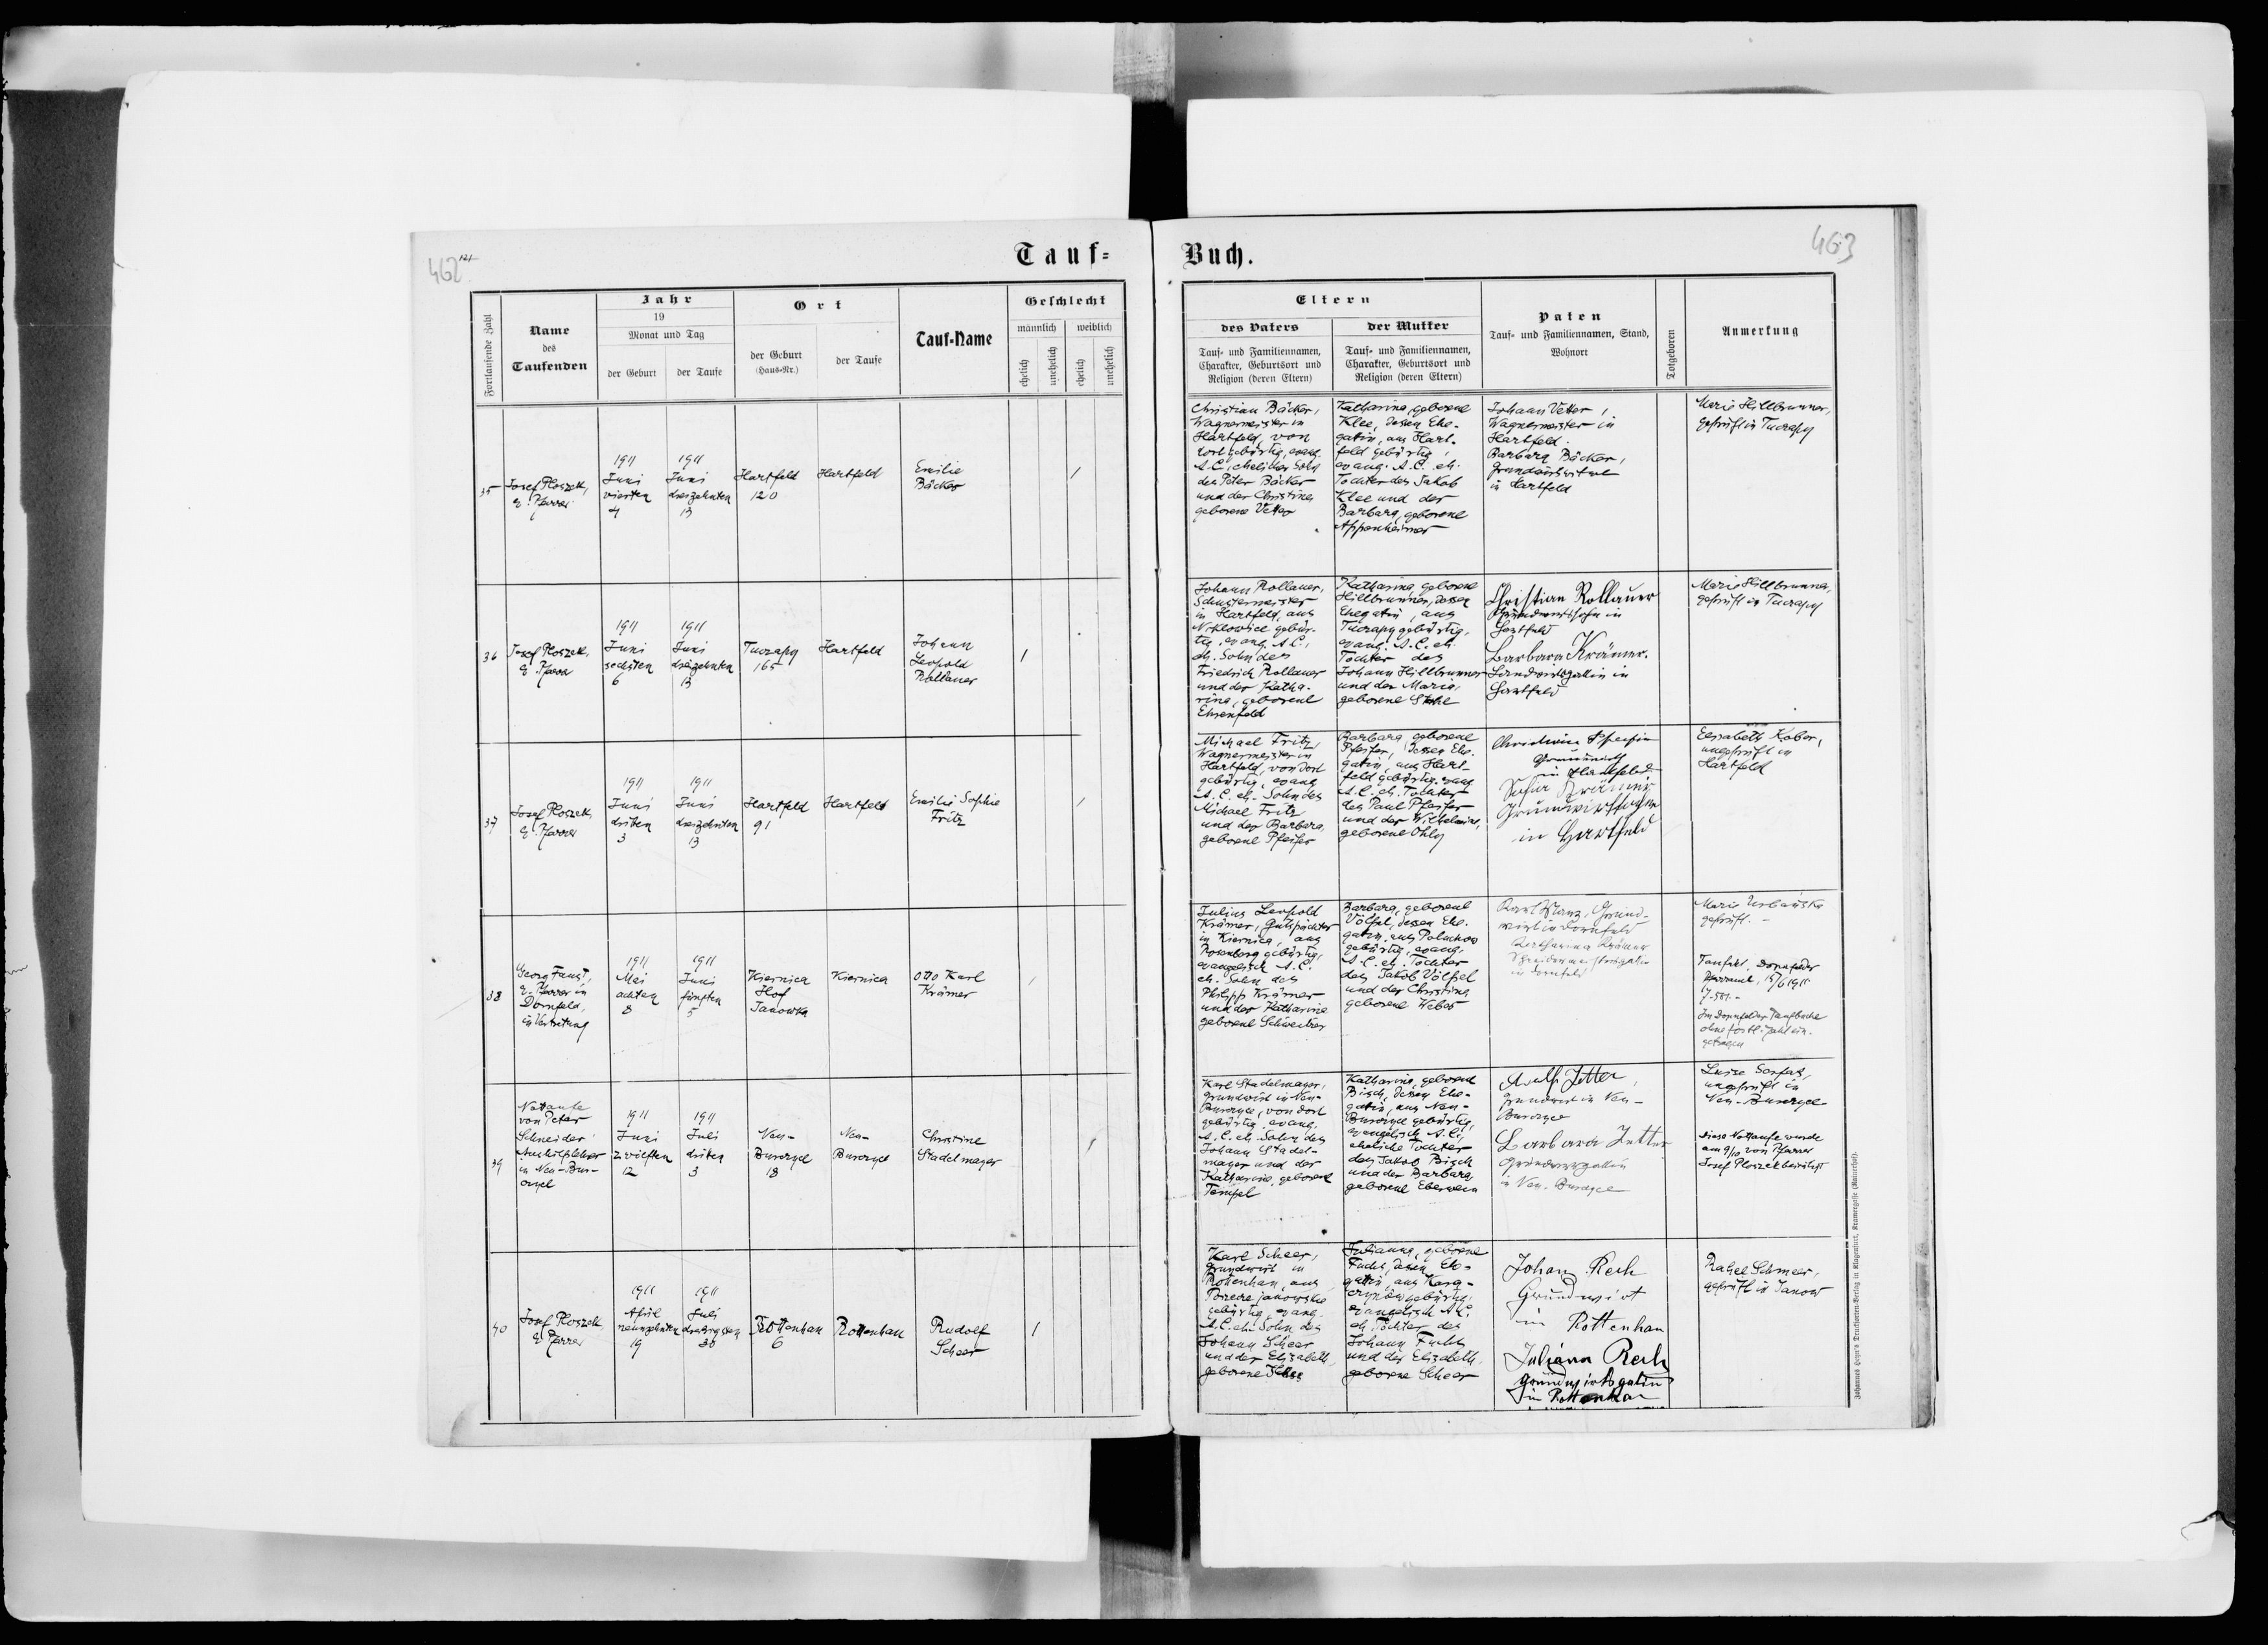 462
121
Tauf=
Fortlaufende Zahl
Name
des
Taufenden
Jahr
19
Monat und Tag
der Geburt
der Taufe
Ort
der Geburt
(Haus-Nr.)
der Taufe
Tauf-Name
Geschlecht
männlich
weiblich
ehelich
unehelich
ehelich
unehelich
35
Josef Ploszek,
ev. Pfarrer
1911
Juni
vierten
4
1911
Juni
dreizehnten
13
Hartfeld
120
Hartfeld
Emilie
Bäcker
36
Josef Ploszek,
ev. Pfarrer
1911
Juni
sechsten
6
1911
Juni
dreizehnten
13
Tuczapy
165
Hartfeld
Johann
Leopold
Rollauer
37
Josef Ploszek,
ev. Pfarrer
1911
Juni
dritten
3
1911
Juni
dreizehnten
13
Hartfeld
91
Hartfeld
Emilie Sophie
Fritz
38
Georg Faust,
ev. Pfarrer in
Dornfeld,
in Vertretung
1911
Mai
achten
8
1911
Juni
fünften
5
Kiernica
Hof
Janowka
Kiernica
Otto Karl
Krämer
39
Nottaufe
von Peter
Schneider
Aushilfslehrer
in Neu-Bur-
czyce
1911
Juni
zwölften
12
1911
Juli
dritten
3
Neu-
Burczyce
18
Neu-
Burczyce
Christine
Stadelmayer
40
Josef Ploszek
ev. Pfarrer
1911
April
neunzehnten
19
1911
Juli
dreissigsten
30
Rottenhan
6
Rottenhan
Rudolf
Scheer
Buch.
463
Eltern
des Vaters
Tauf- und Familiennamen,
Charakter, Geburtsort und
Religion (deren Eltern)
der Mutter
Tauf- und Familiennamen,
Charakter, Geburtsort und
Religion (deren Eltern)
Paten
Tauf- und Familiennamen, Stand,
Wohnort
Totgeboren
Anmerkung
Christian Bäcker,
Wagnermeister in
Hartfeld, von
dort gebürtig, evang.
A.C., ehelicher Sohn
des Peter Bäcker
und der Christine
geborene Vetter
Katharina, geborene
Klee, dessen Ehe-
gatin, aus Hart-
feld gebürtig,
evang. A.C. eh.
Tochter des Jakob
Klee und der
Barbara, geborene
Appenheimer
Johann Vetter,
Wagnermeister in
Hartfeld.
Barbara Bäcker,
in Hartfeld
Marie Hillbrunner,
geprüft in Tuczapy
Johann Rollauer,
Schustermeister
in Hartfeld, aus
Niklowice gebür-
tig, evang. A.C.,
eh. Sohn des
Friedrich Rollauer
und der Katha-
rina, geborene
Ehrenfeld
Katharina, geborene
Hillbrunner, dessen
Ehegatin, aus
Tuczapy gebürtig,
evang. A.C. eh.
Tochter des
Johann Hillbrunner
und der Maria,
geborene
Christian Rollauer
Grundwirtssohn in
Hartfeld
Barbara Krämer.
Landwirtsgattin in
Hartfeld
Marie Hillbrunner,
geprüft in Tuczapy
Michael Fritz,
Wagnermeister in
Hartfeld, von dort
gebürtig, evang.
A.C. eh. Sohn des
Michael Fritz
und der Barbara,
geborene Pfeifer
Barbara, geborene
Pfeifer, dessen Ehe-
gatin, aus Hart-
feld gebürtig, evang.
A.C. eh. Tochter
des Paul Pfeifer
und der Wilhelmine,
geborene Ohly
in Hartfeld
Krämer
in Hartfeld
Elisabeth Kober,
ungeprüft in
Hartfeld
Julius Leopold
Krämer, Gutspächter
in Kiernica, aus
Rosenberg gebürtig,
evangelisch A.C.
eh. Sohn des
Philipp Krämer
und der Katharina
geborene Schweitzer
Barbara, geborene
Völpel, dessen Ehe-
gatin, aus Poluchow
gebürtig, evang.
A.C. eh. Tochter
des Jakob Völpel
und der Christina
geborene Weber
Karl Manz, Grund-
wirt in Dornfeld
Katharina Krämer
in Dornfeld
Marie Urbańska
geprüft. -
Taufakt, Dornfelder
Pfarramt, 15/6 1911
Im Dornfelder Taufbuche
ohne fortl. Zahl ein-
getragen
Karl Stadelmayer,
Grundwirt in Neu-
Burczyce, von dort
gebürtig, evang.
A.C. eh. Sohn des
Johann Stadel-
mayer und der
Katharina, geborene
Tempel
Katharina, geborene
Bisch, dessen Ehe-
gatin, aus Neu-
Burczyce gebürtig,
evangelisch A.C.,
eheliche Tochter
des Jakob Bisch
und der Barbara
geborene Eberwein
Adolf Jetter,
Grundwirt in Neu-
Burczyce
Barbara Jetter
Grundwirtsgattin
in Neu-Burczyce
Luise
ungeprüft in
Neu-Burczyce
Diese Nottaufe wurde
am 9/10 von Pfarrer
Josef Ploszek bestätigt
Karl Scheer,
Grundwirt in
Rottenhan, aus
Porzecze janowskie
gebürtig, evang.
A.C. eh. Sohn des
Johann Scheer
und der Elisabeth,
geborene
Julianna, geborene
Fuchs, dessen Ehe-
gatin, aus
gebürtig,
evangelisch A.C.
eh. Tochter des
Johann Fuchs
und der Elisabeth,
geborene Scheer
Johann Rech
Grundwirt
in Rottenhan
Juliana Rech
Grundwirtsgatin
in Rottenhan
Rahel Schmeer,
geprüft in Janow
Johannes Heyn's Drucksorten-Verlag in Klagenfurt, Kramergasse (Rauterhof).